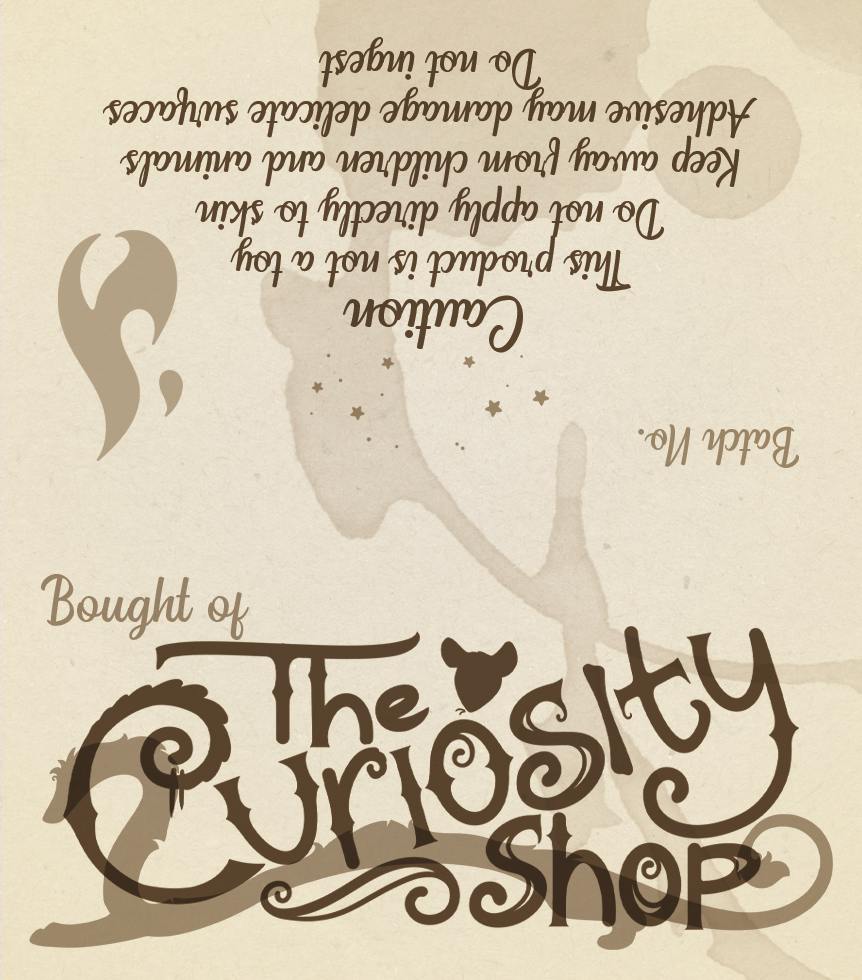 Caution
This product is not a toy
Do not apply directly to skin
Keep away from children and animals
Adhesive may damage delicate surfaces
Do not ingest
Batch No.
Bought of
The
Curiosity
Shop